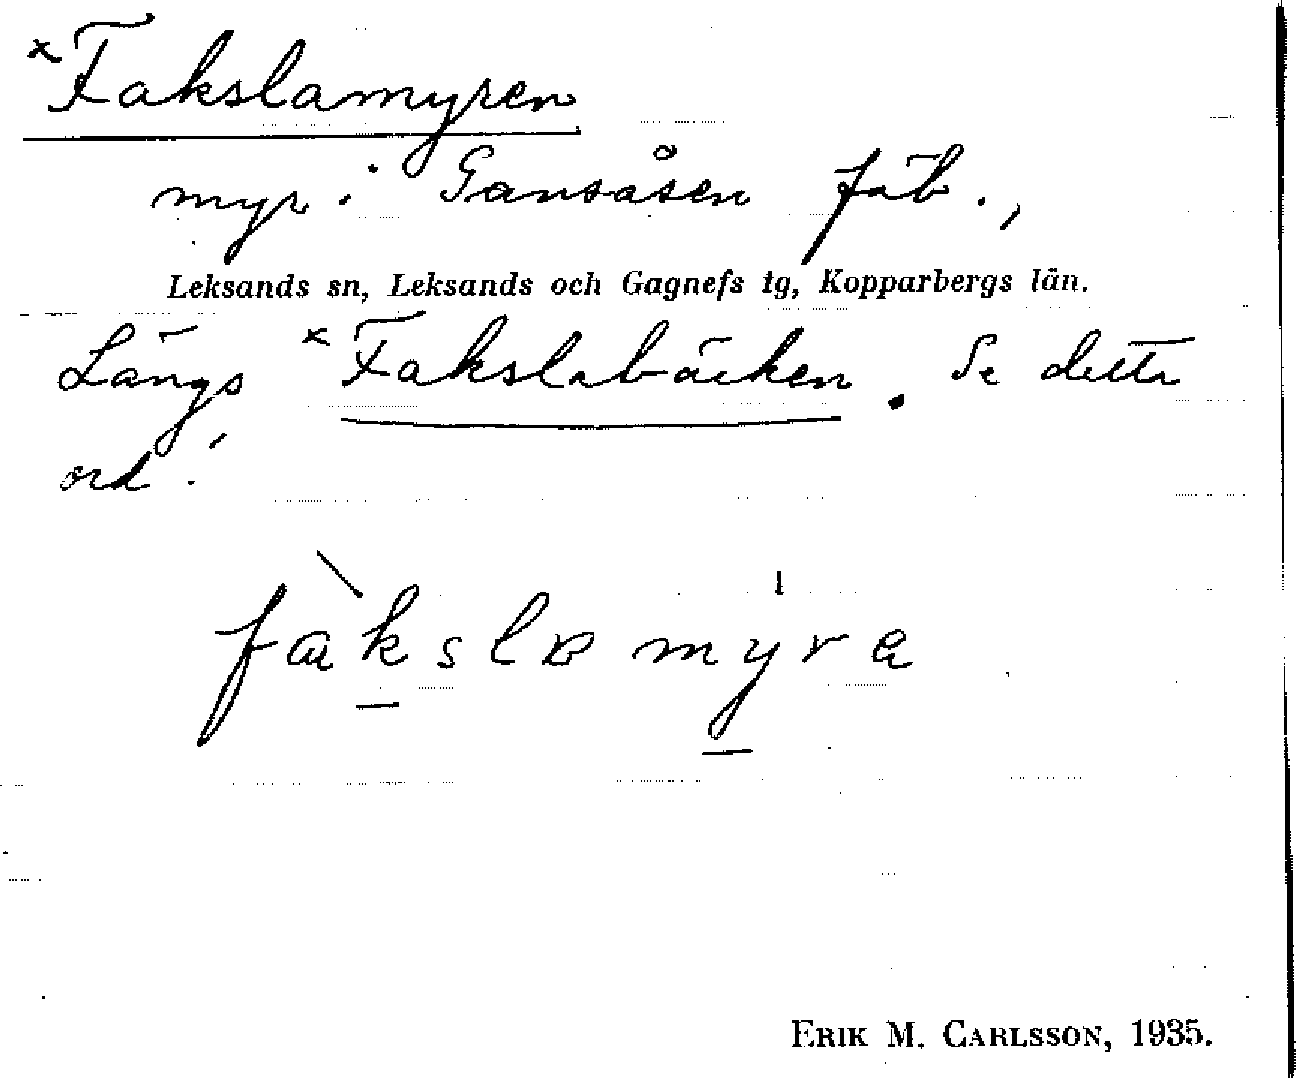 ×Fakslamyren
myr i Gansåsen fäb.,
Leksands sn, Leksands och Gagnefs tg, Kopparbergs län.
Längs ×Fakslabäcken. Se detta
ord!
fàkslɒmyra
ERIK M. CARLSSON, 1935.